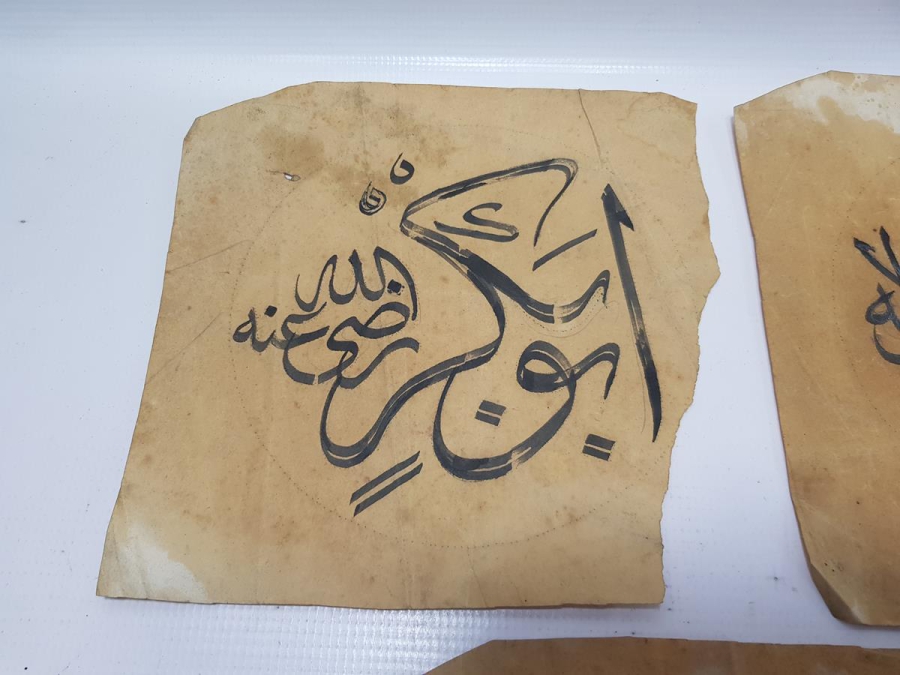 ابو بكرٍ
رضى الله عنه